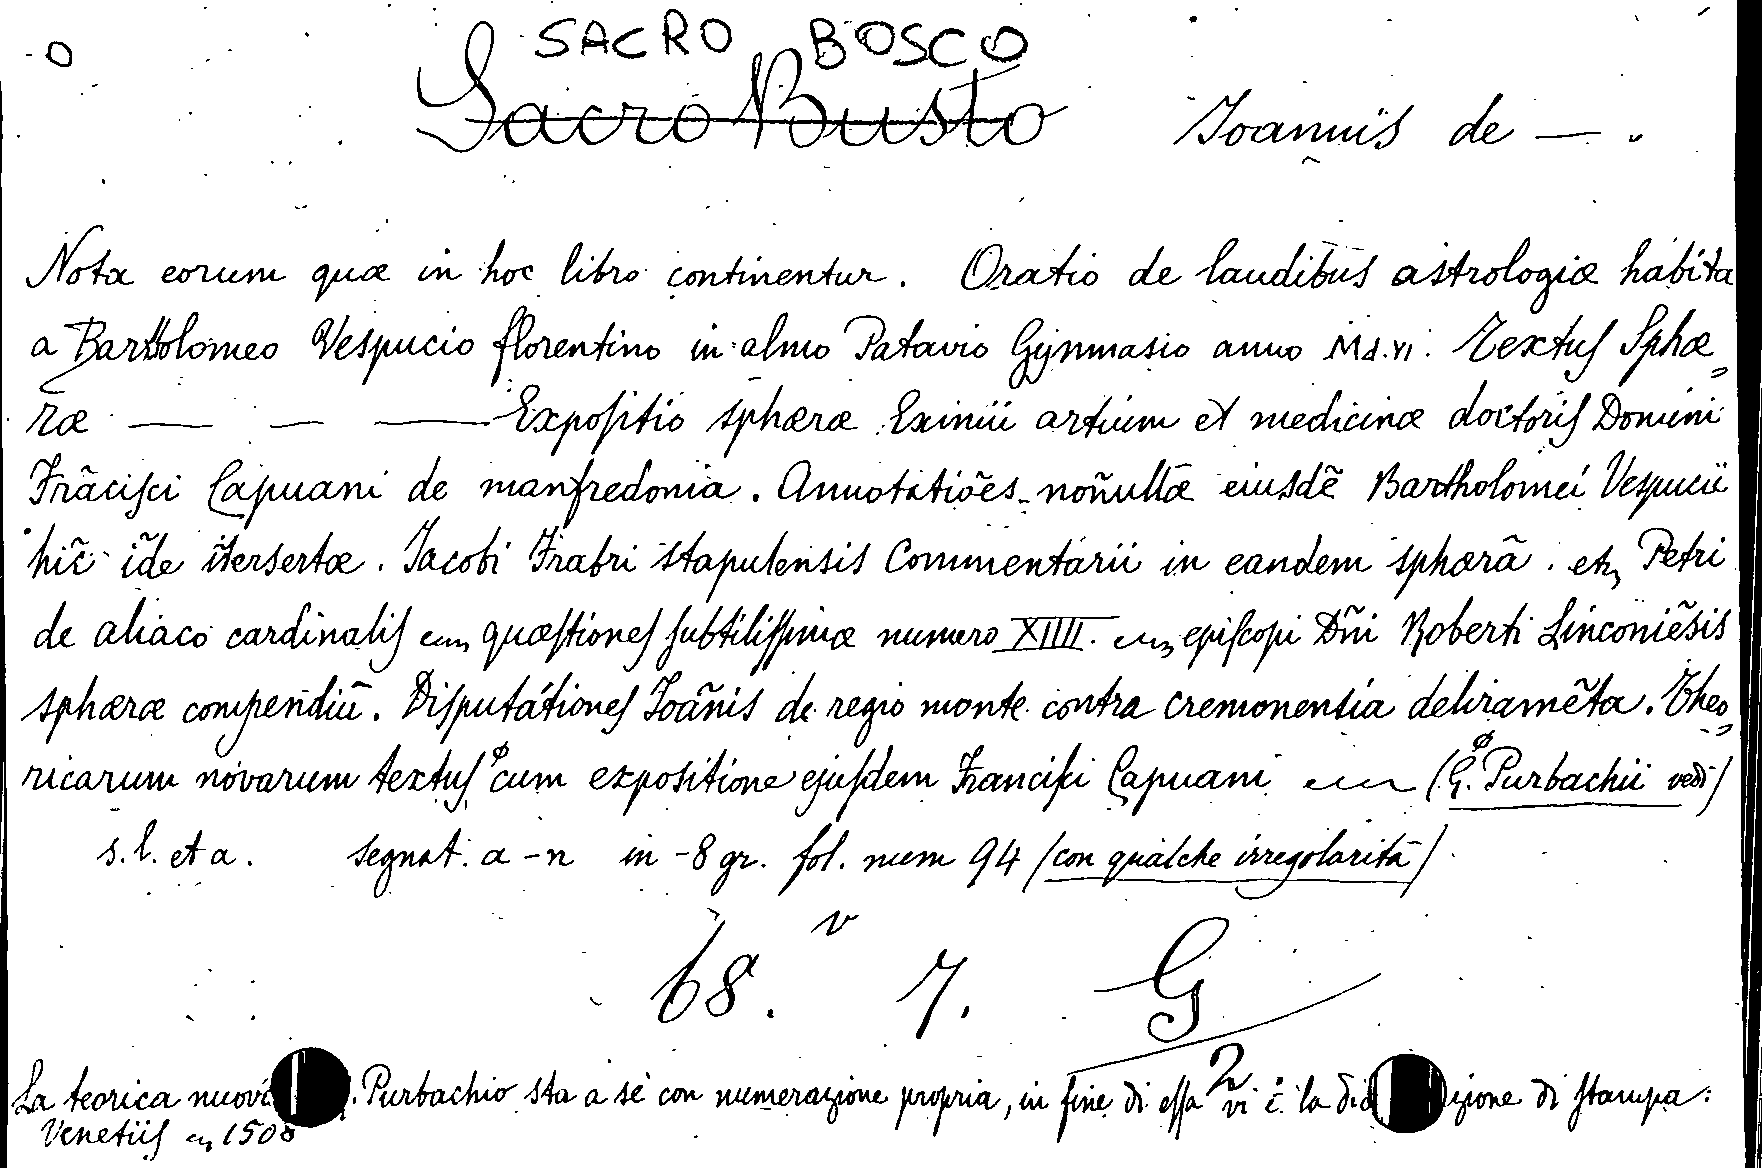 SACRO BOSCO
Sacro Busto Joannis de — .
Nota eorum quæ in hoc libro continentur. Oratio de laudibus astrologiæ habita
a Bartholomeo Vespucio florentino in almo Patavio Gymnasio anno Md.vi. Textuſ Sphæ=
ræ — — — Expoſitio sphæræ Eximii artium et medicinæ doctoriſ Domini
Frãciſci Capuani de manfredonia. Annotatiões noñullæ eiusdẽ Bartholomei Vespucii
hic ĩde ĩtersertæ. Jacobi Frabri stapulensis Commentarii in eandem sphærã. et Petri
de aliaco cardinaliſ quæſtioneſ ſubtiliſſimæ numero XIIII. epiſcopi Dñi Roberti Linconiẽsis
sphæræ compendiũ. Diſputationeſ Joãnis de regio monte contra cremonensia deliramẽta. Theo=
ricarum novarum textuſ cum expositione ejuſdem Franciſci Capuani (G. Purbachii vedi)
s.l. et a. segnat. a-n in-8 gr. fol. num 94 (con qualche irregolarità)
68. v 7. G
La teorica Purbachio sta a sè con numerazione propria, in fine di eſſa vi è la di ſtampa:
Venetiis